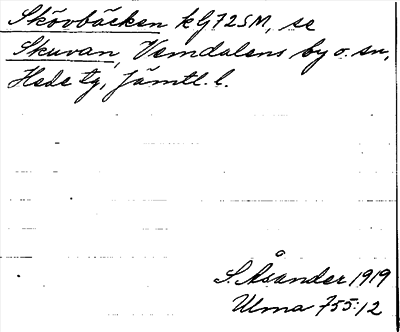 Skövbäcken k G725M, se
Skuvan, Vemdalens by o. sn,
Hede tg, Jämtl. l.
S. Åsander 1919
Ulma 755:12